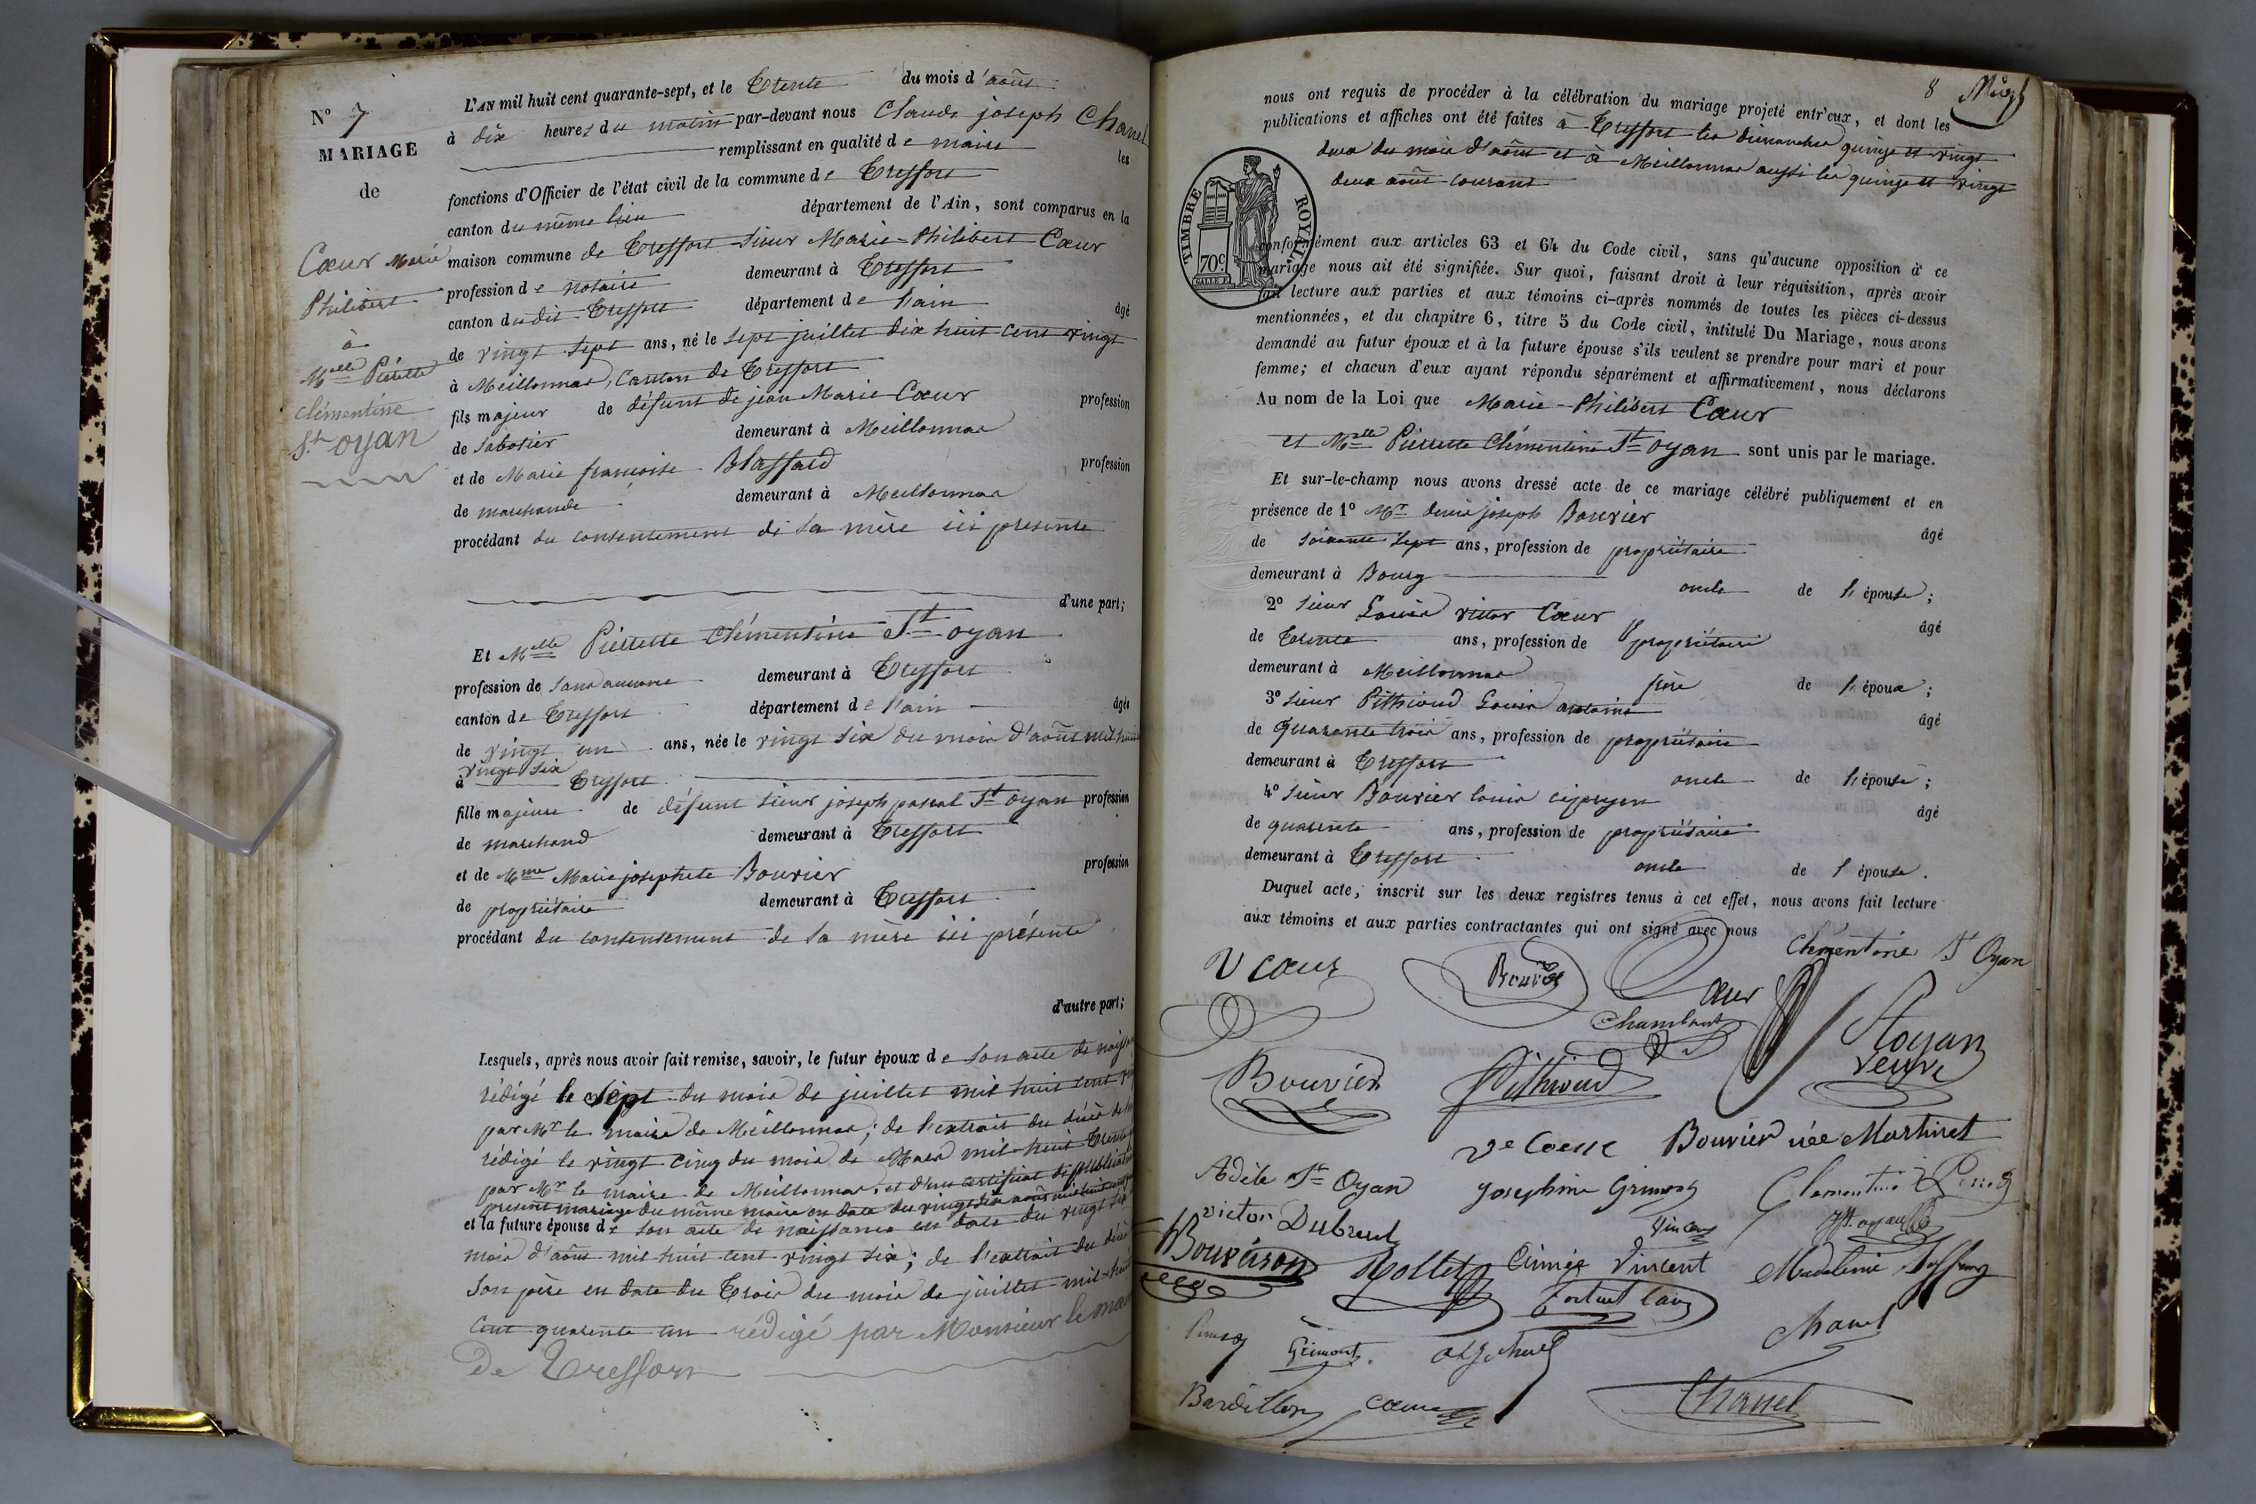 N° 7
MARIAGE
de
Cœur Marie
Philibert
à
Melle Pierrette
clémentine
St oyan
L'AN mil huit cent quarante-sept, et le Trente du mois d'août
à dix heures du matin par-devant nous Claude joseph Chanel
remplissant en qualité de maire les
fonctions d'Officier de l'état civil de la commune de Treffort
canton du même lieu département de l'Ain, sont comparus en la
maison commune de Treffort Sieur Marie-Philibert Cœur
profession de notaire demeurant à Treffort
canton dudit Treffort département de l'ain âgé
de vingt sept ans, né le sept juillet dix huit cent vingt
à Meillonnas, canton de Treffort
fils majeur de défunt de jean Marie Cœur profession
de Sabotier demeurant à Meillonnas
et de Marie françoise Blaffard profession
de marchande demeurant à Meillonnas
procédant du consentement de sa mère ici présente
d'une part;
Et Melle Pierrette Clémentine St oyan
profession de sans aucune demeurant à Treffort
canton de Treffort département de l'ain âgée
de vingt un ans, née le vingt six du mois d'août mil huit
vingt six
à Treffort
fille majeure de défunt sieur joseph pascal St oyan profession
de marchand demeurant à Treffort
et de Mme Marie josephete Bouvier profession
de propriétaire demeurant à Treffort
procédant du consentement de sa mère ici présente
d'autre part;
Lesquels, après nous avoir fait remise, savoir, le futur époux de son acte de
rédigé le sept du mois de juillet mil huit cent
par Mr le maire de Meillonnas; de l'extrait du décès de
rédigé le vingt cinq du mois de Mars mil huit Trente
par Mr le maire de Meillonnas. et d'un certificat de publication
présent mariage du même maire en date du vingt six août mil huit
et la future épouse de son acte de naissance en date du vingt six
mois d'août mil huit cent vingt six; de l'extrait du décès
son père en date du Trois du mois de juillet mil huit
cent quarante un rédigé par Monsieur le
De Treffort
8
nous ont requis de procéder à la célébration du mariage projeté entr'eux, et dont les
publications et affiches ont été faites à Treffort les dimanches quinze et vingt
deux du mois d'août et à Meillonnas aussi les quinze et vingt
deux août courant
TIMBRE ROYAL
70c
conformément aux articles 63 et 64 du Code civil, sans qu'aucune opposition à ce
mariage nous ait été signifiée. Sur quoi, faisant droit à leur réquisition, après avoir
fait lecture aux parties et aux témoins ci-après nommés de toutes les pièces ci-dessus
mentionnées, et du chapitre 6, titre 5 du Code civil, intitulé Du Mariage, nous avons
demandé au futur époux et à la future épouse s'ils veulent se prendre pour mari et pour
femme; et chacun d'eux ayant répondu séparément et affirmativement, nous déclarons
Au nom de la Loi que Marie-Philibert Cœur
et Melle Pierrette Clémentine St oyan sont unis par le mariage.
Et sur-le-champ nous avons dressé acte de ce mariage célébré publiquement et en
présence de 1° Mr denis joseph Bouvier âgé
de soixante sept ans, profession de propriétaire
demeurant à Bourg oncle de l'épouse;
2° sieur Louis victor Cœur âgé
de Trente ans, profession de propriétaire
demeurant à Meillonnas frère de l'époux;
3° sieur Pithioud Louis antoine âgé
de Quarante trois ans, profession de propriétaire
demeurant à Treffort oncle de l'épouse;
4° sieur Bouvier louis ciprien âgé
de quarante ans, profession de propriétaire
demeurant à Treffort oncle de l'épouse.
Duquel acte, inscrit sur les deux registres tenus à cet effet, nous avons fait lecture
aux témoins et aux parties contractantes qui ont signé avec nous
V cœur Bouvier Cœur Clémentine St Oyan
Chambard
Bouvier Pithioud Stoyan
veuve
Ve Coeur Bouvier née Martinet
Adèle St Oyan Josephine Grimont Clementine
victor Dubreul Vincent
Bouveiron Rollet Aimée Vincent Madeleine
Grimont Chanel
Bardillon cœur Chanel